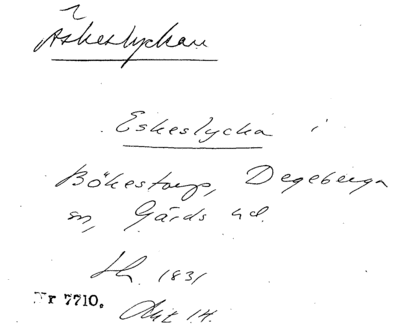 Äskeslyckan
Eskeslycka i
Bökestorp, Degeberga
sn, Gärds hd.
Sk. 1831
Nr 7710. Akt 14.